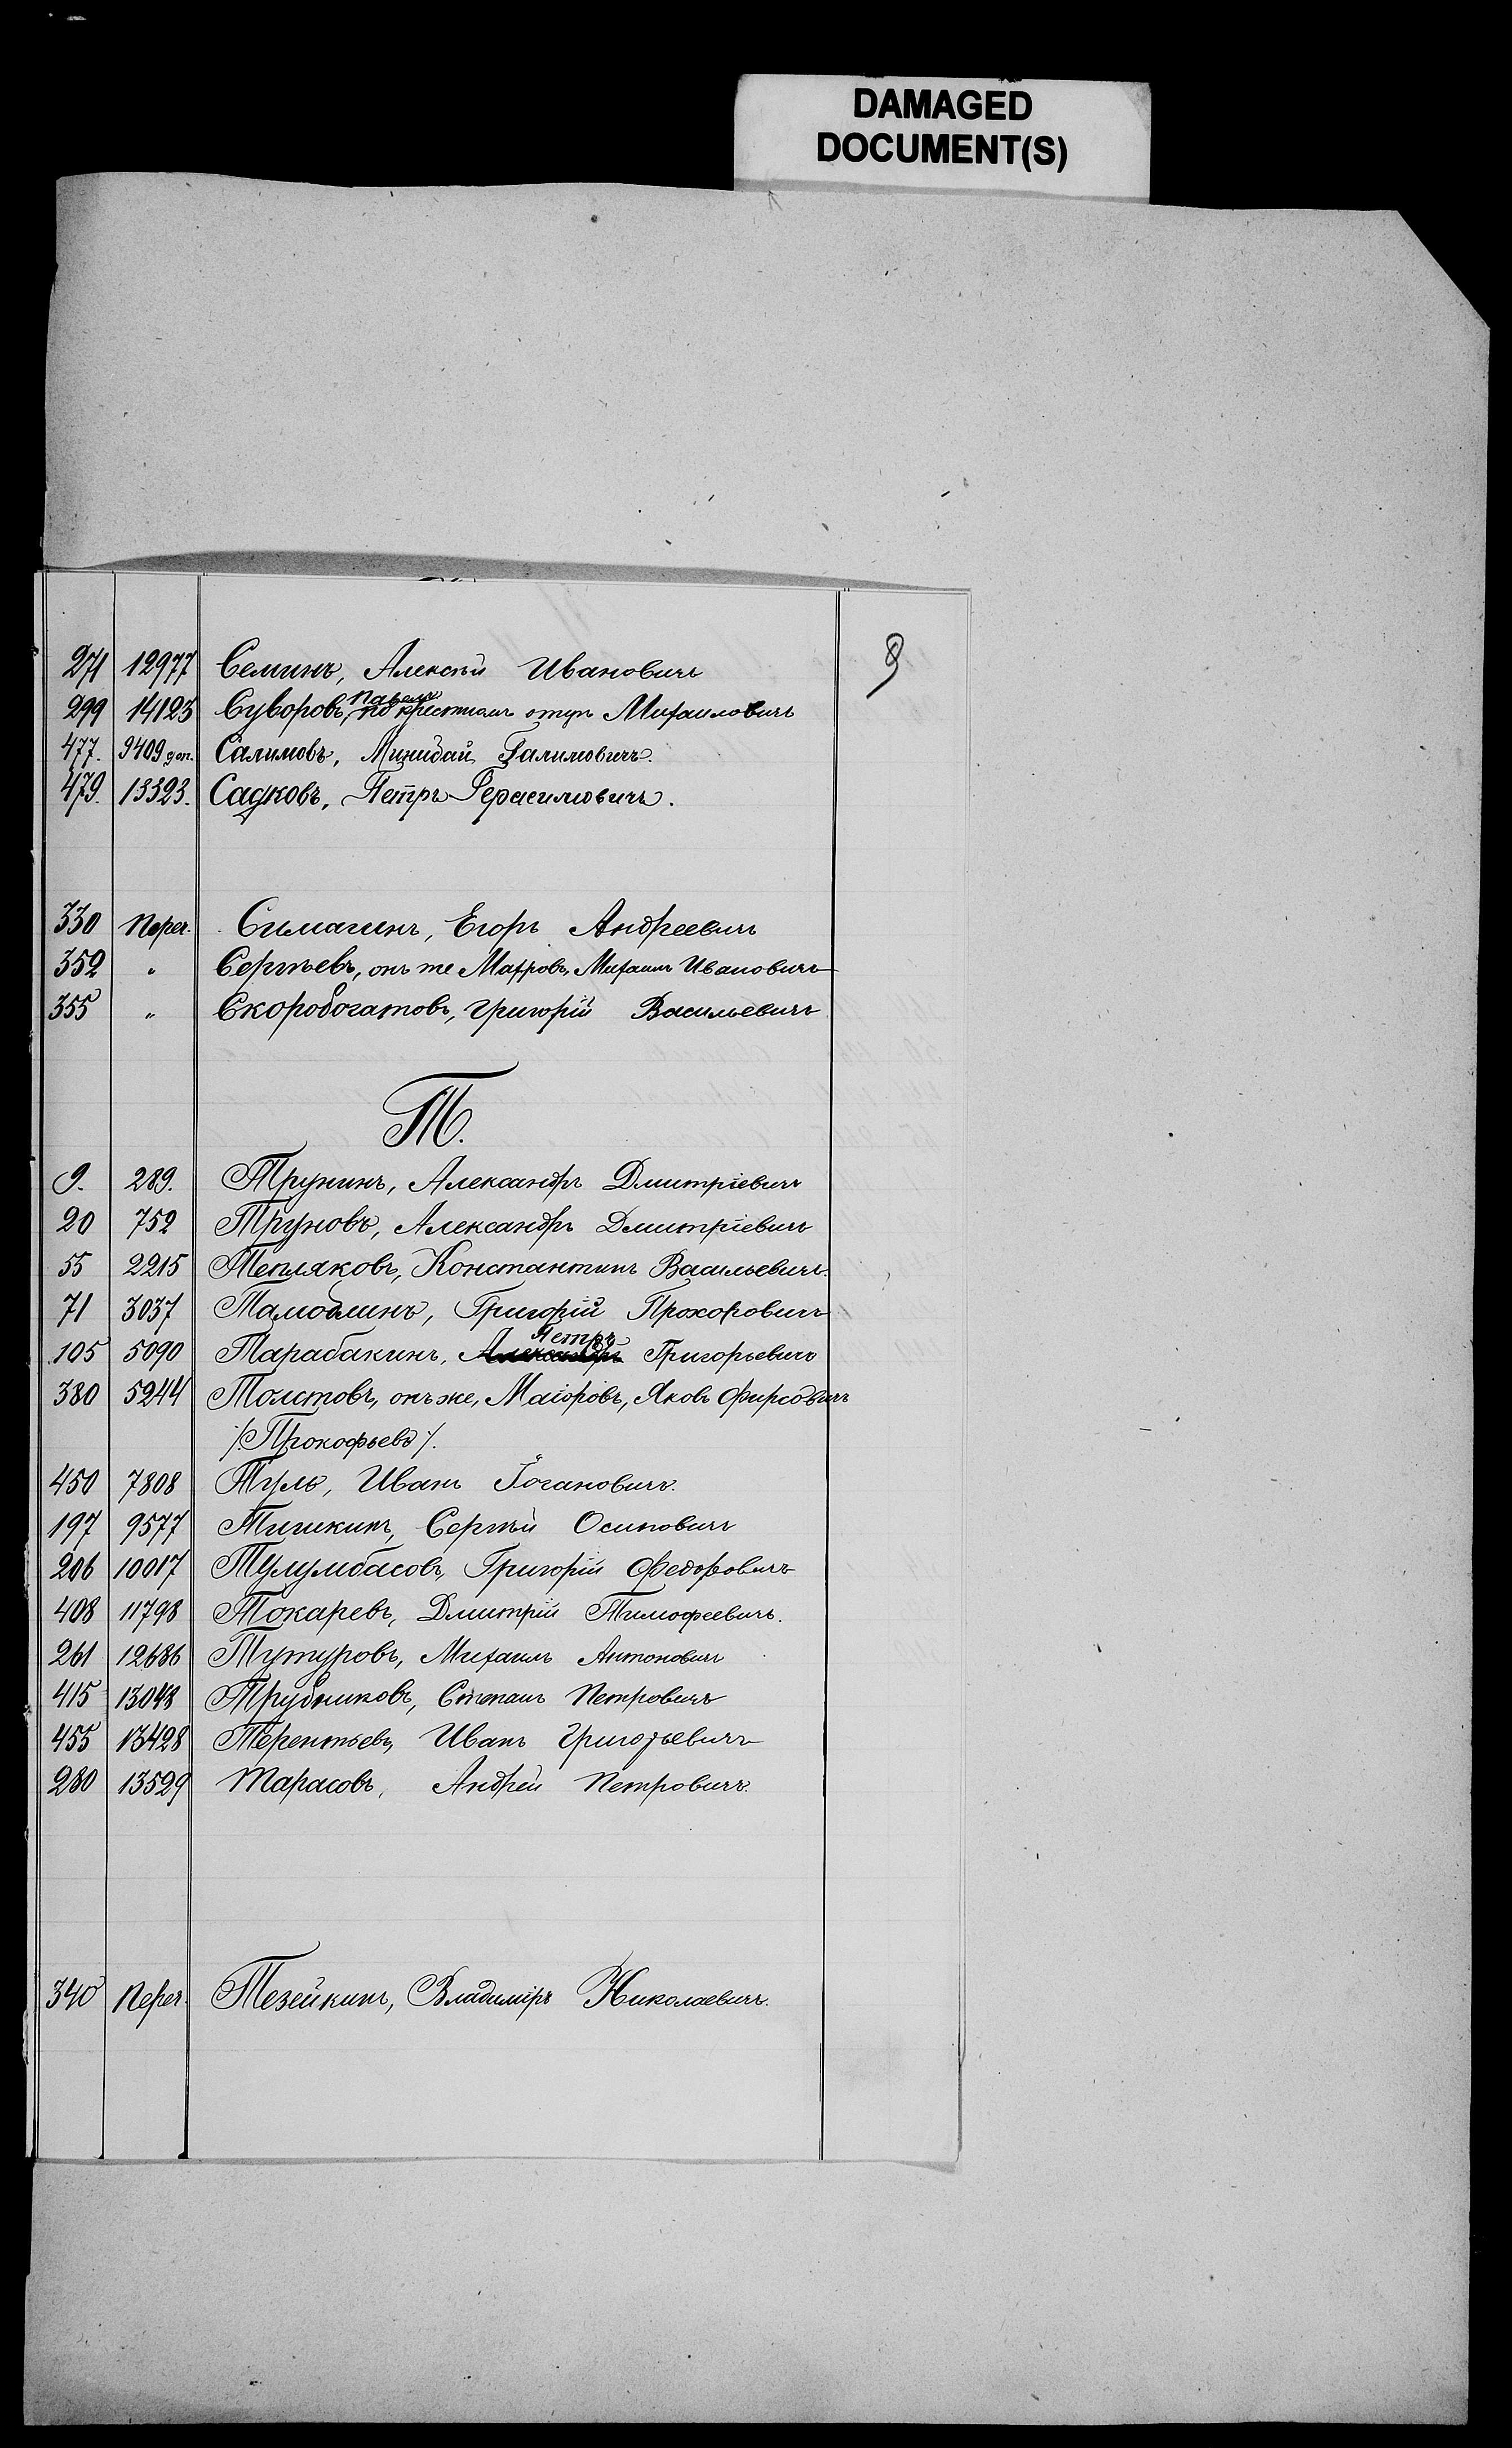 DAMAGED
DOCUMENT(S)
9
271 12977 Семинъ, Алексѣй Ивановичъ
Павелъ
299 14123 Суворовъ, по крестнымъ отцѣ Михаиловичъ
477. 9409 доп. Салимовъ, Минибай Галимовичъ.
479. 13323. Садковъ, Петръ Герасимовичъ.
330 Переч. Симагинъ, Егоръ Андреевичъ
352 " Сергѣевъ, онъ же Мавровъ, Михаилъ Ивановичъ
355 " Скоробогатовъ, Григорій Васильевичъ
Т.
9. 289. Трунинъ, Александръ Дмитріевичъ
20 752 Труновъ, Александръ Дмитріевичъ
55 2215 Тепляковъ, Константинъ Васильевичъ.
71 3037 Тамоблинъ, Григорій Прохоровичъ
Петръ
105 5090 Тарабакинъ, Александръ Григорьевичъ
380 5244 Толстовъ, онъ же, Маіоровъ, Яковъ Фирсовичъ
/Прокофьевъ/.
450 7808 Туль, Иванъ Іогановичъ.
197 9577 Тишкинъ, Сергѣй Осиповичъ
206 10017 Тулумбасовъ, Григорій Федоровичъ
408 11798 Токаревъ, Дмитрій Тимофеевичъ.
261 12686 Тутуровъ, Михаилъ Антоновичъ
415 13048 Трубниковъ, Степанъ Петровичъ
455 13428 Терентьевъ, Иванъ Григорьевичъ
280 13529 Тарасовъ, Андрей Петровичъ.
340 Переч. Тезейкинъ, Владиміръ Николаевичъ.